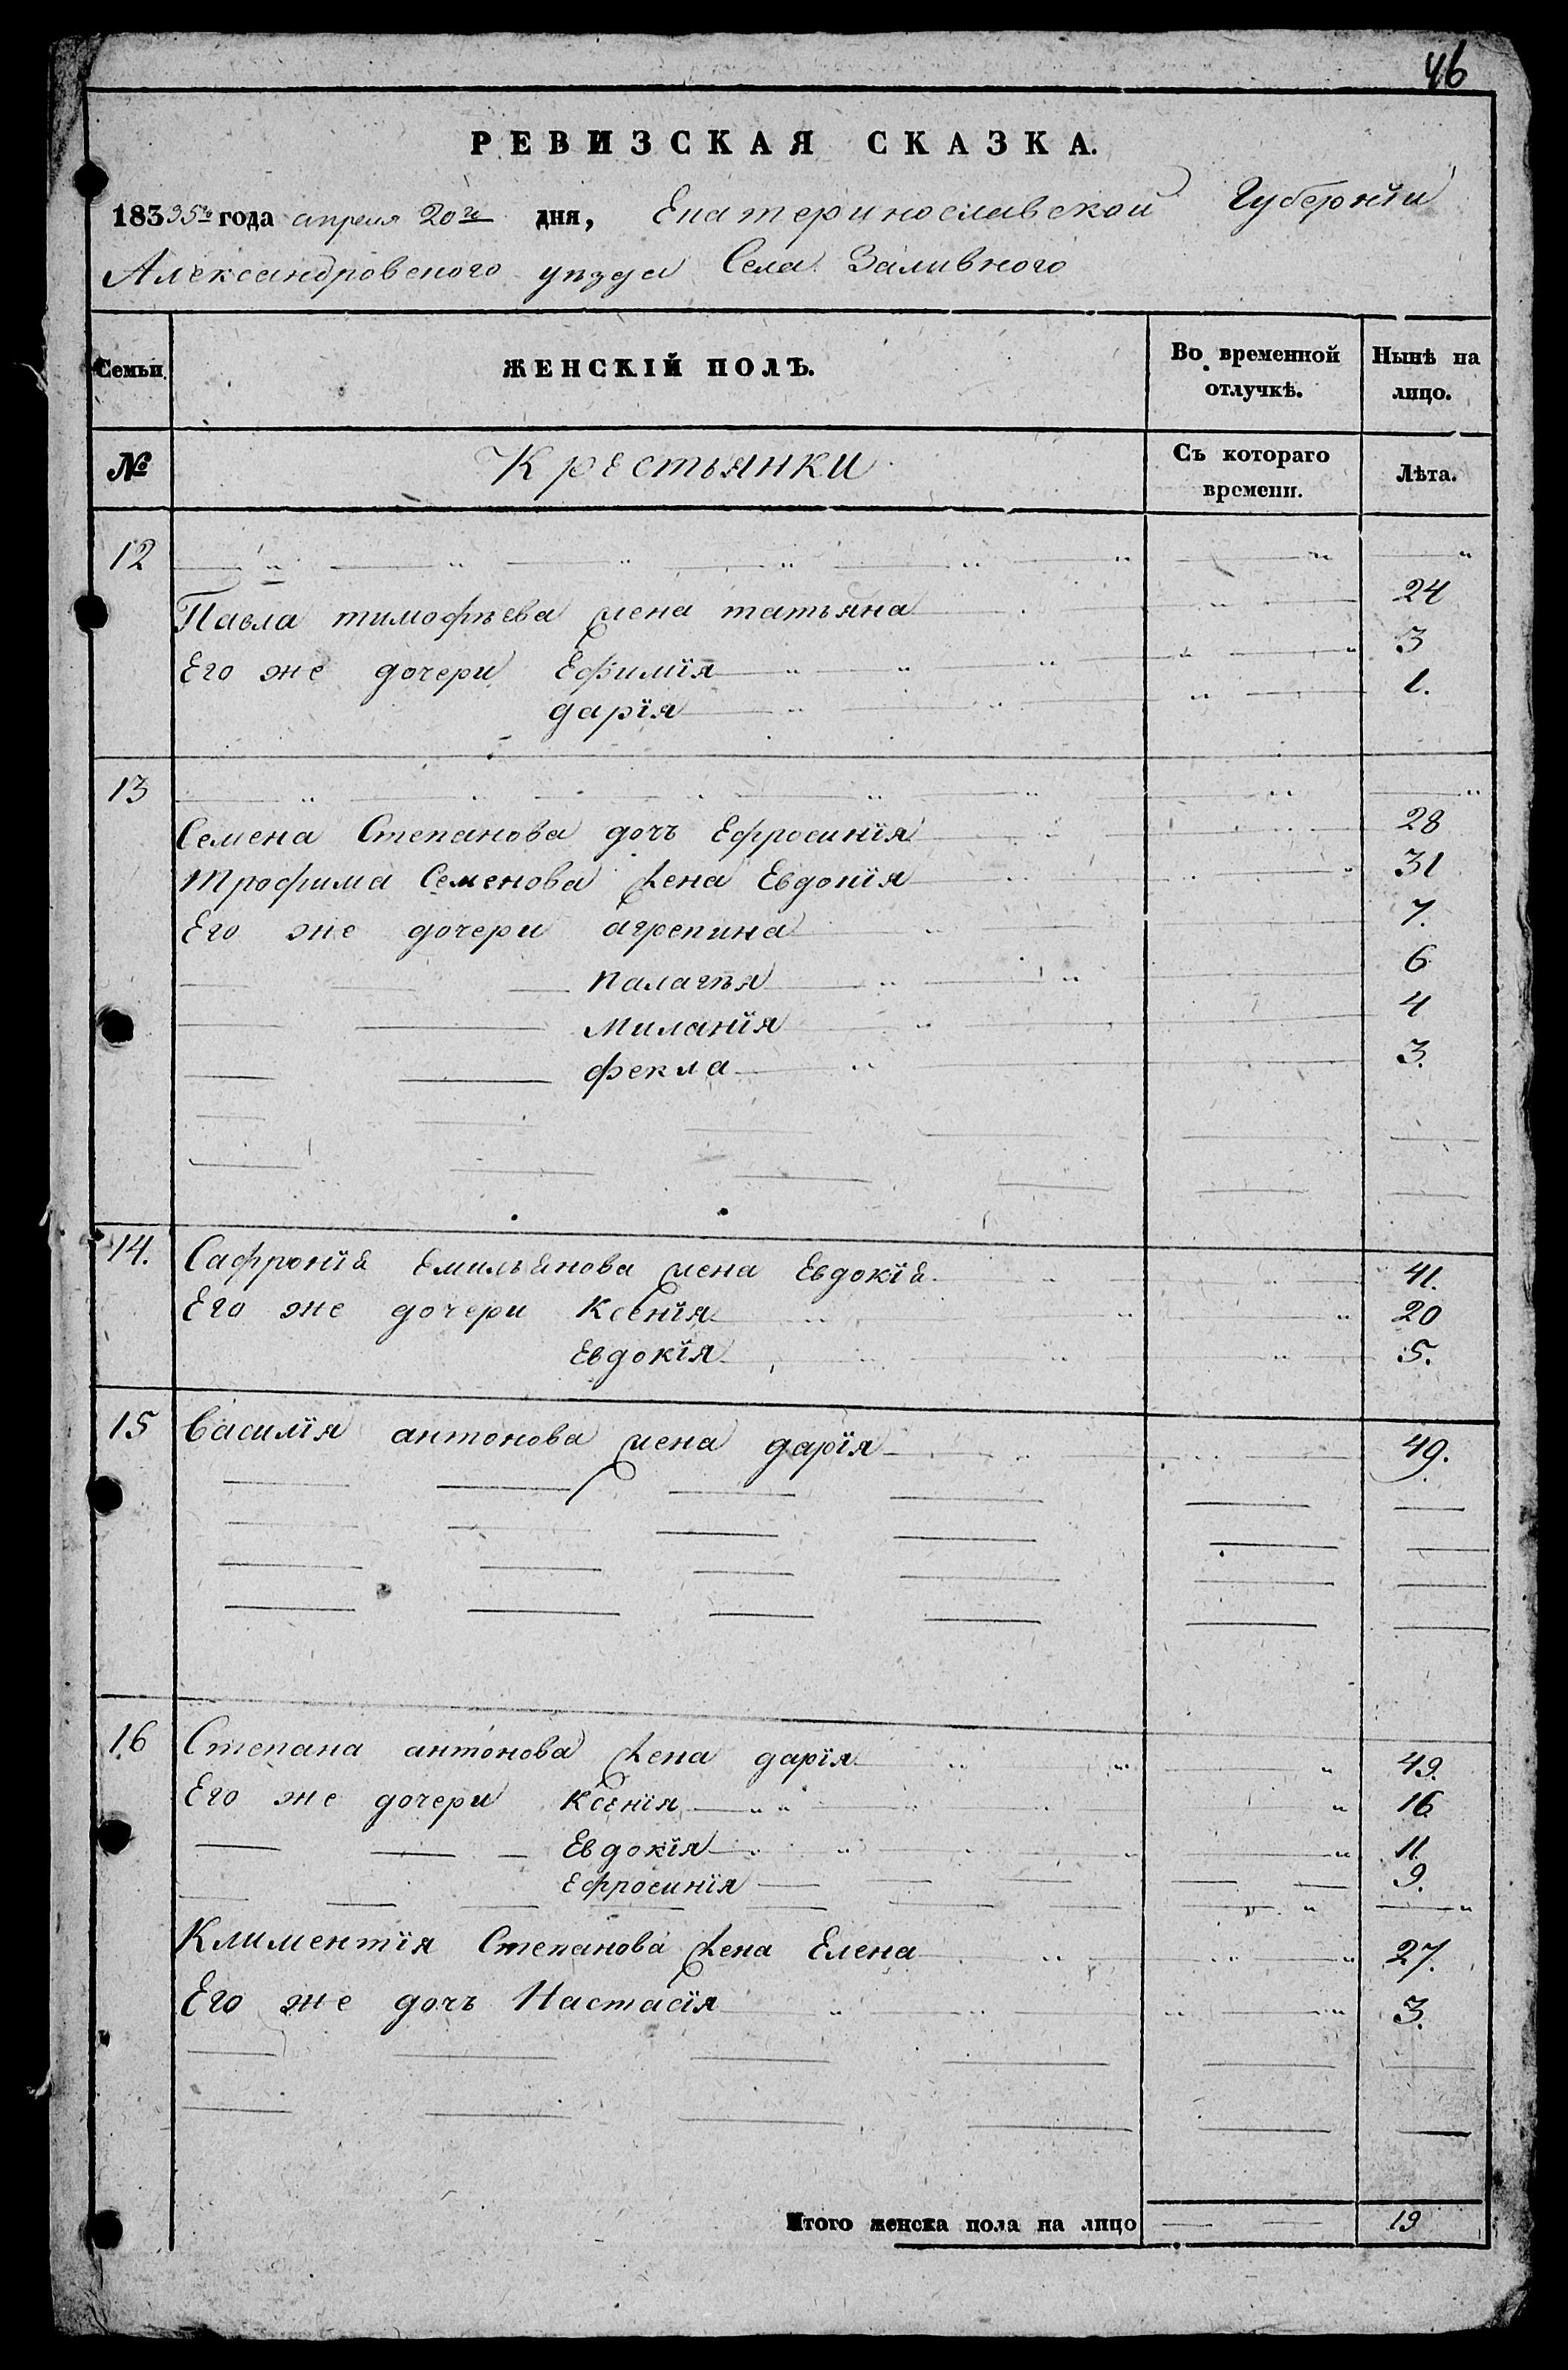 46
РЕВИЗСКАЯ СКАЗКА.
18335го года апреля 20го дня, Екатеринославской Губернїи
Александровского уѣзда Села Заливного
Семьи. ЖЕНСКІЙ ПОЛЪ. Во временной отлучкѣ. Нынѣ на лицо.
№ Крестьянки Съ котораго времени. Лѣта.
12
Павла тимофѣева жена татьяна 24
Его же дочери Ефимїя 3
дарїя 1.
13
Семена Степанова дочь Ефросинїя 28
Трофима Семенова жена Евдокїя 31
Его же дочери агрепина 7.
палагѣя 6
Миланїя 4
фекла 3.
14. Сафронїя Емильянова жена Евдокїя 41.
Его же дочери Ксенїя 20
Евдокїя 5.
15 Василїя антонова жена дарїя 49.
16 Степана антонова жена дарїя 49.
Его же дочери Ксенїя 16
Евдокїя 11.
Ефросинїя 9.
Климентїя Степанова жена Елена 27.
Его же дочь Настасїя 3.
Итого женска пола на лицо 19